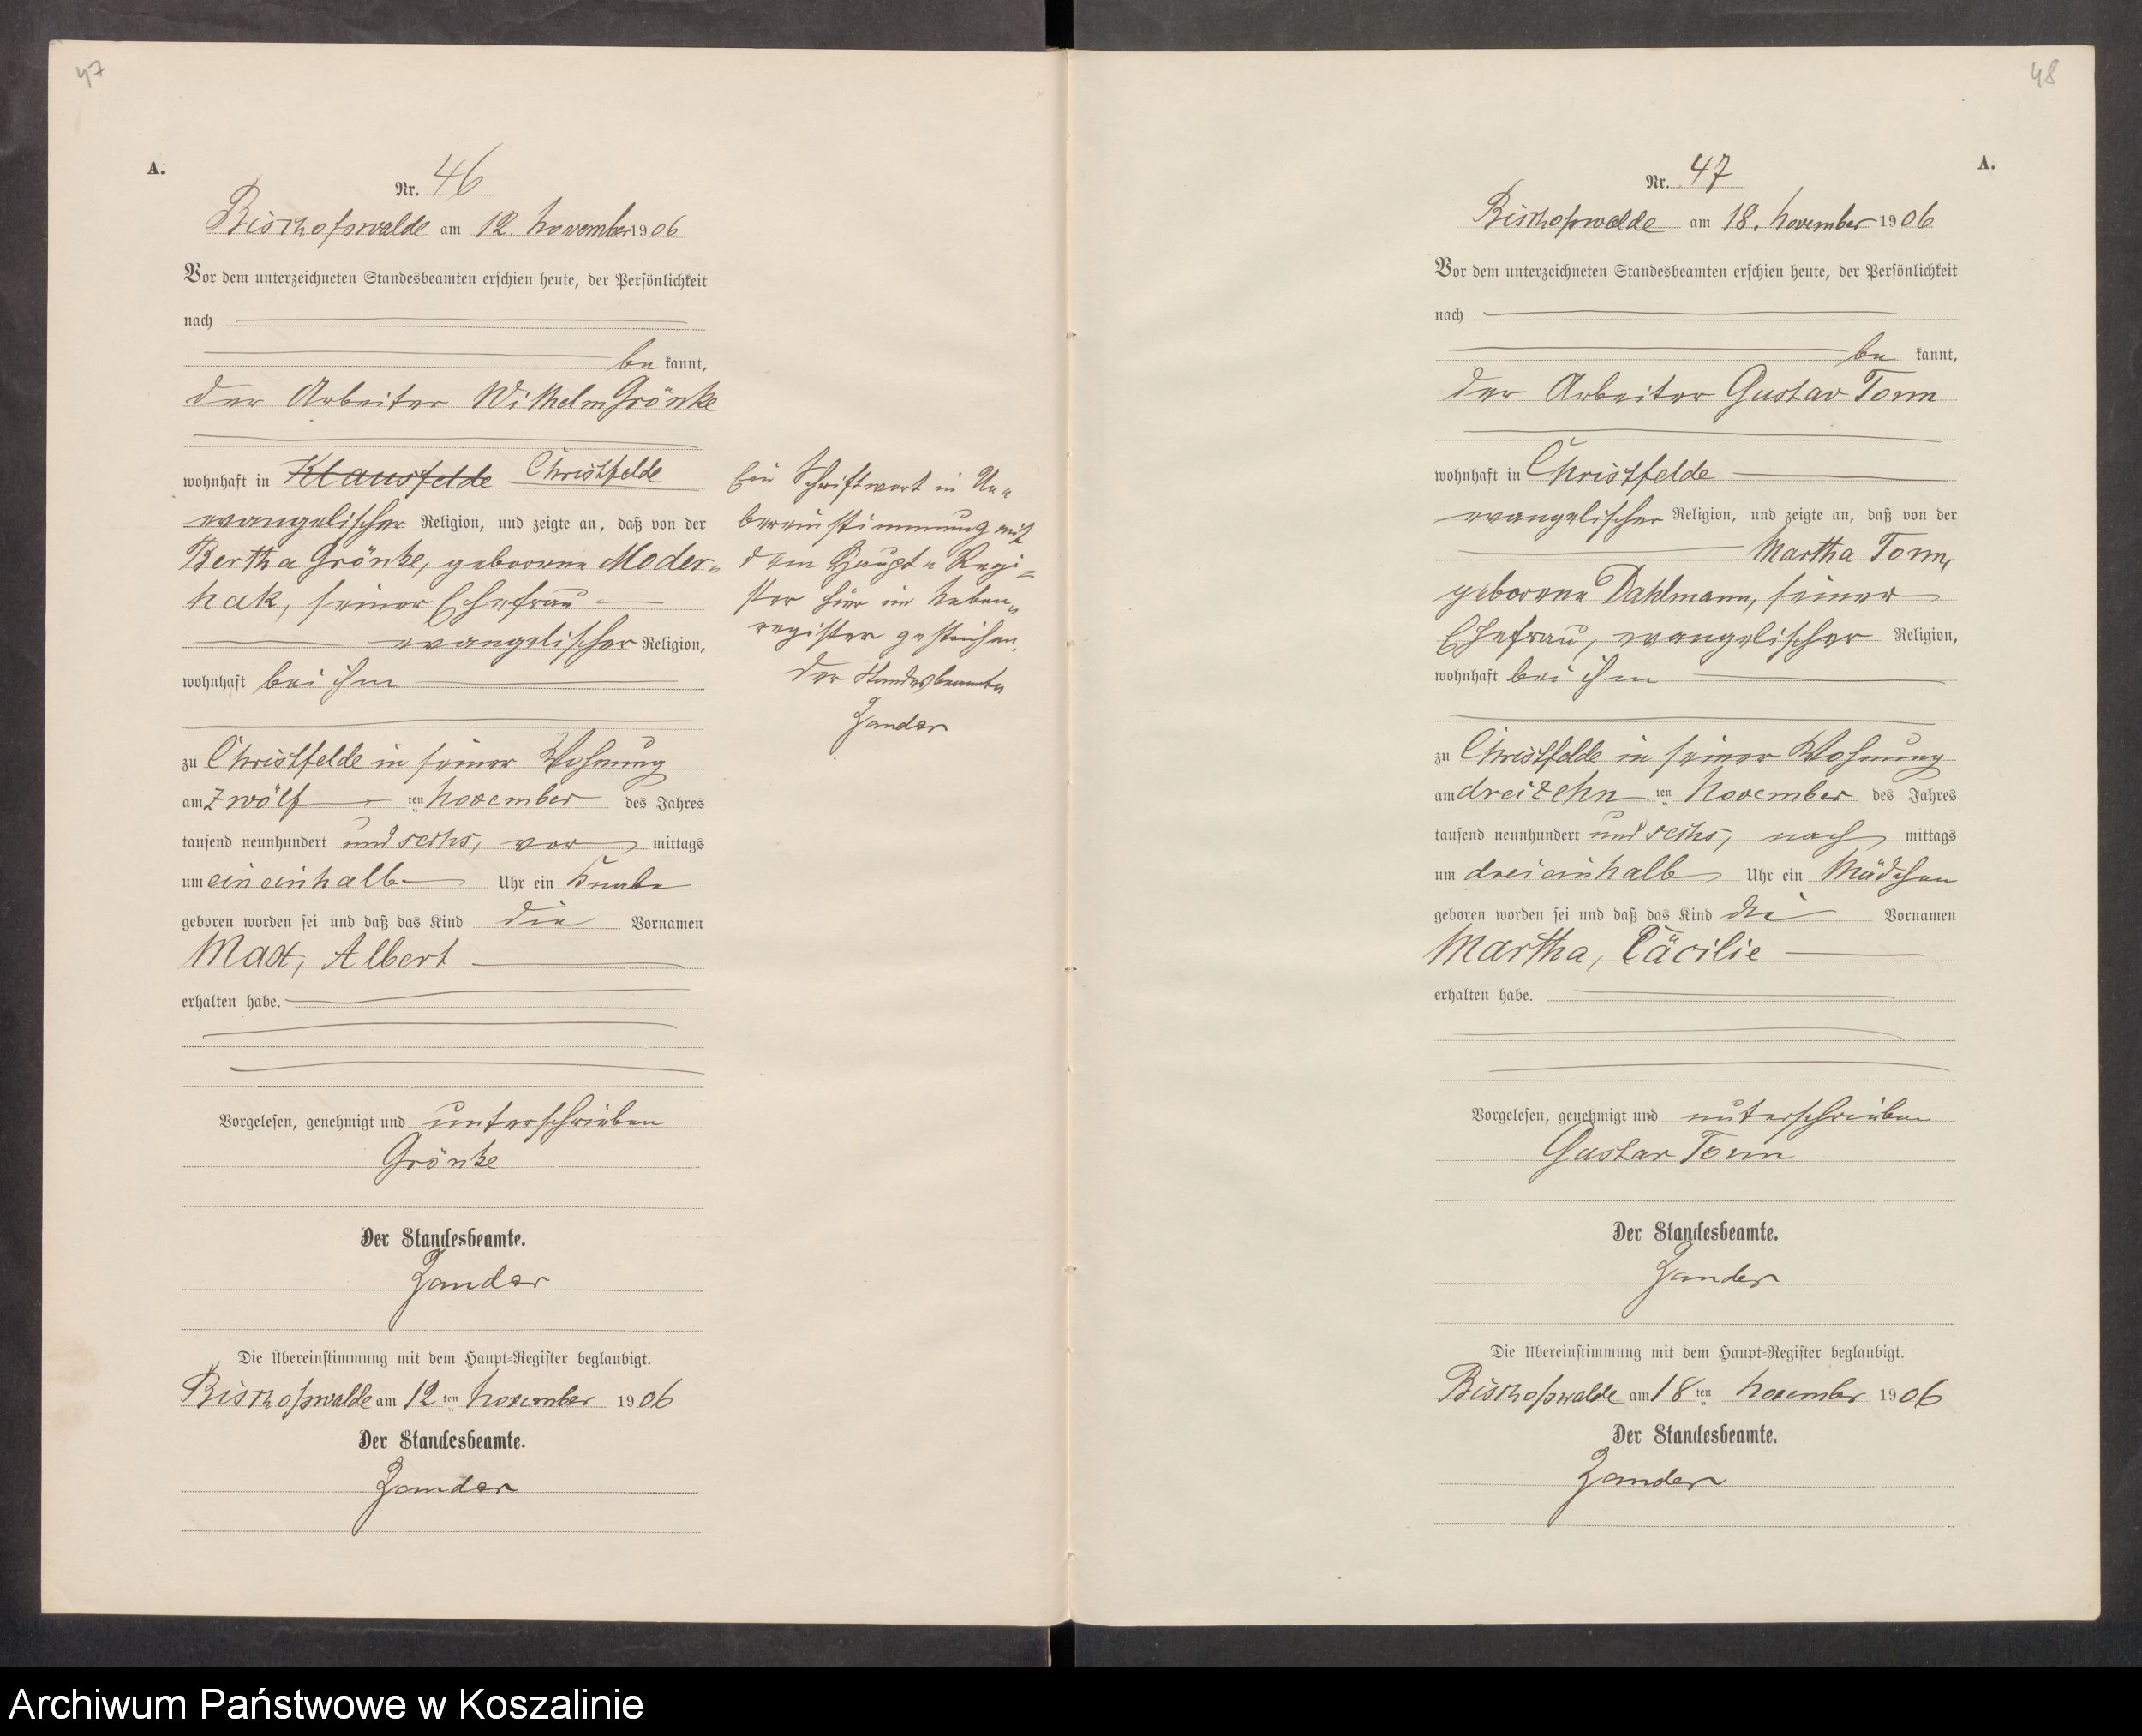 47
A.
Nr. 46
Bischofswalde am 12. November 1906
Vor dem unterzeichneten Standesbeamten erschien heute, der Persönlichkeit
nach
be kannt,
der Arbeiter Wilhelm Grönke
wohnhaft in Klausfelde Christfelde
evangelischer Religion, und zeigte an, daß von der
Bertha Grönke, geborene Moder-
hak, seiner Ehefrau
evangelischer Religion,
wohnhaft bei ihm
zu Christfelde in seiner Wohnung
am zwölf ten November des Jahres
tausend neunhundert und sechs, vor mittags
um ein einhalb Uhr ein Knabe
geboren worden sei und daß das Kind die Vornamen
Max, Albert
erhalten habe.
Vorgelesen, genehmigt und unterschrieben
Grönke
Der Standesbeamte.
Zander
Die Übereinstimmung mit dem Haupt-Register beglaubigt.
Bischofswalde am 12 ten November 1906
Der Standesbeamte.
Zander
Ein Schriftwort in Ue-
bereinstimmung mit
dem Haupt-Regi=
ster hier im Neben-
register gestrichen.
Der Standesbeamte
Zander
48
A.
Nr. 47
Bischofswalde am 18. November 1906
Vor dem unterzeichneten Standesbeamten erschien heute, der Persönlichkeit
nach
be kannt,
der Arbeiter Gustav Tonn
wohnhaft in Christfelde
evangelischer Religion, und zeigte an, daß von der
Martha Tonn,
geborene Dahlmann, seiner
Ehefrau, evangelischer Religion,
wohnhaft bei ihm
zu Christfelde in seiner Wohnung
am dreizehn ten November des Jahres
tausend neunhundert und sechs, nach mittags
um drei einhalb Uhr ein Mädchen
geboren worden sei und daß das Kind die Vornamen
Martha, Cäcilie
erhalten habe.
Vorgelesen, genehmigt und unterschrieben
Gustav Tonn
Der Standesbeamte.
Zander
Die Übereinstimmung mit dem Haupt-Register beglaubigt.
Bischofswalde am 18 ten November 1906
Der Standesbeamte.
Zander
Archiwum Państwowe w Koszalinie